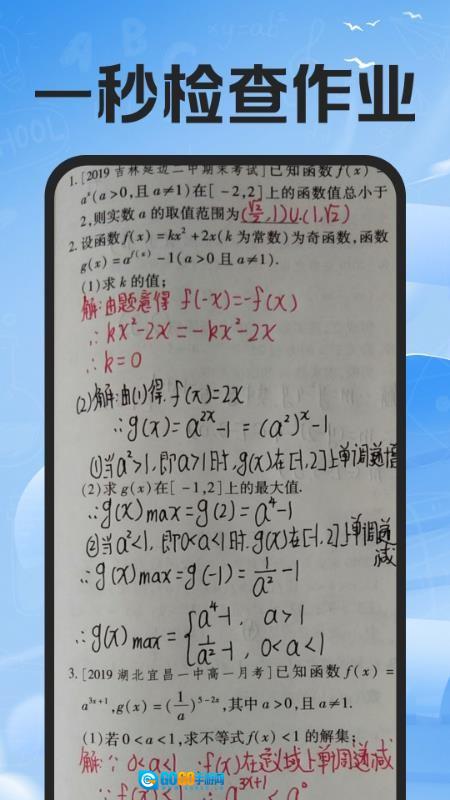 一秒检查作业
1. [2019 吉林延边二中期末考试]已知函数 f(x) =
a^x(a>0,且 a≠1)在[-2,2]上的函数值总小于
2,则实数 a 的取值范围为(√2/2,1)∪(1,√2)
2. 设函数 f(x) = kx²+2x(k 为常数)为奇函数,函数
g(x) = a^{f(x)} -1(a>0 且 a≠1).
(1)求 k 的值;
解:由题意得 f(-x)=-f(x)
∴kx²-2x=-kx²-2x
∴k=0
(2)解:由(1)得,f(x)=2x
∴g(x)=a^{2x}-1=(a²)^x-1
①当a²>1,即a>1时,g(x)在[-1,2]上单调递增
(2)求 g(x)在[-1,2]上的最大值.
∴g(x)max=g(2)=a⁴-1
②当a²<1,即0<a<1时,g(x)在[-1,2]上单调递减
∴g(x)max=g(-1)=1/a²-1
∴g(x)max={a⁴-1, a>1
1/a²-1, 0<a<1
3. [2019 湖北宜昌一中高一月考]已知函数 f(x) =
a^{3x+1},g(x)=(1/a)^{5-2x},其中 a>0,且 a≠1.
(1)若 0<a<1,求不等式 f(x)<1 的解集;
解:∵0<a<1 ∴f(x)在定义域上单调递减
GOGO手游网
∴f(x)<1 a^{3x+1}<a⁰